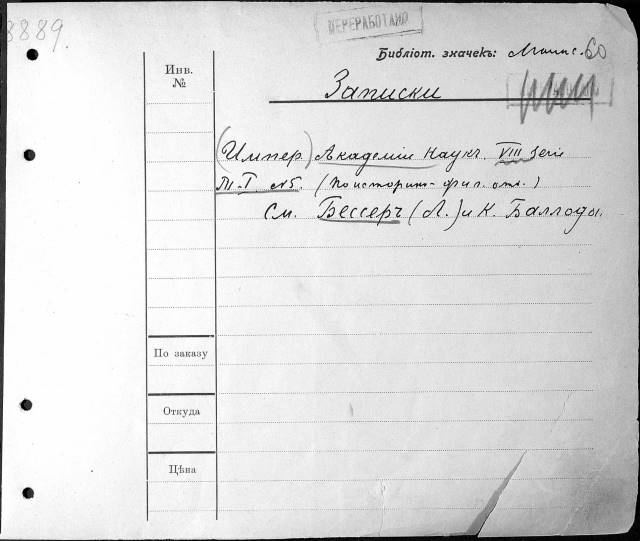 8889.
ПЕРЕРАБОТАНО
Библіот. значекъ: 60
Инв.
№
Записки
(Импер.) Академіи Наукъ. VIII Serie
Т. I. №5. (По историч-фил. отд.)
См. Бессеръ (Л.) и К. Баллодъ.
По заказу
Откуда
Цѣна